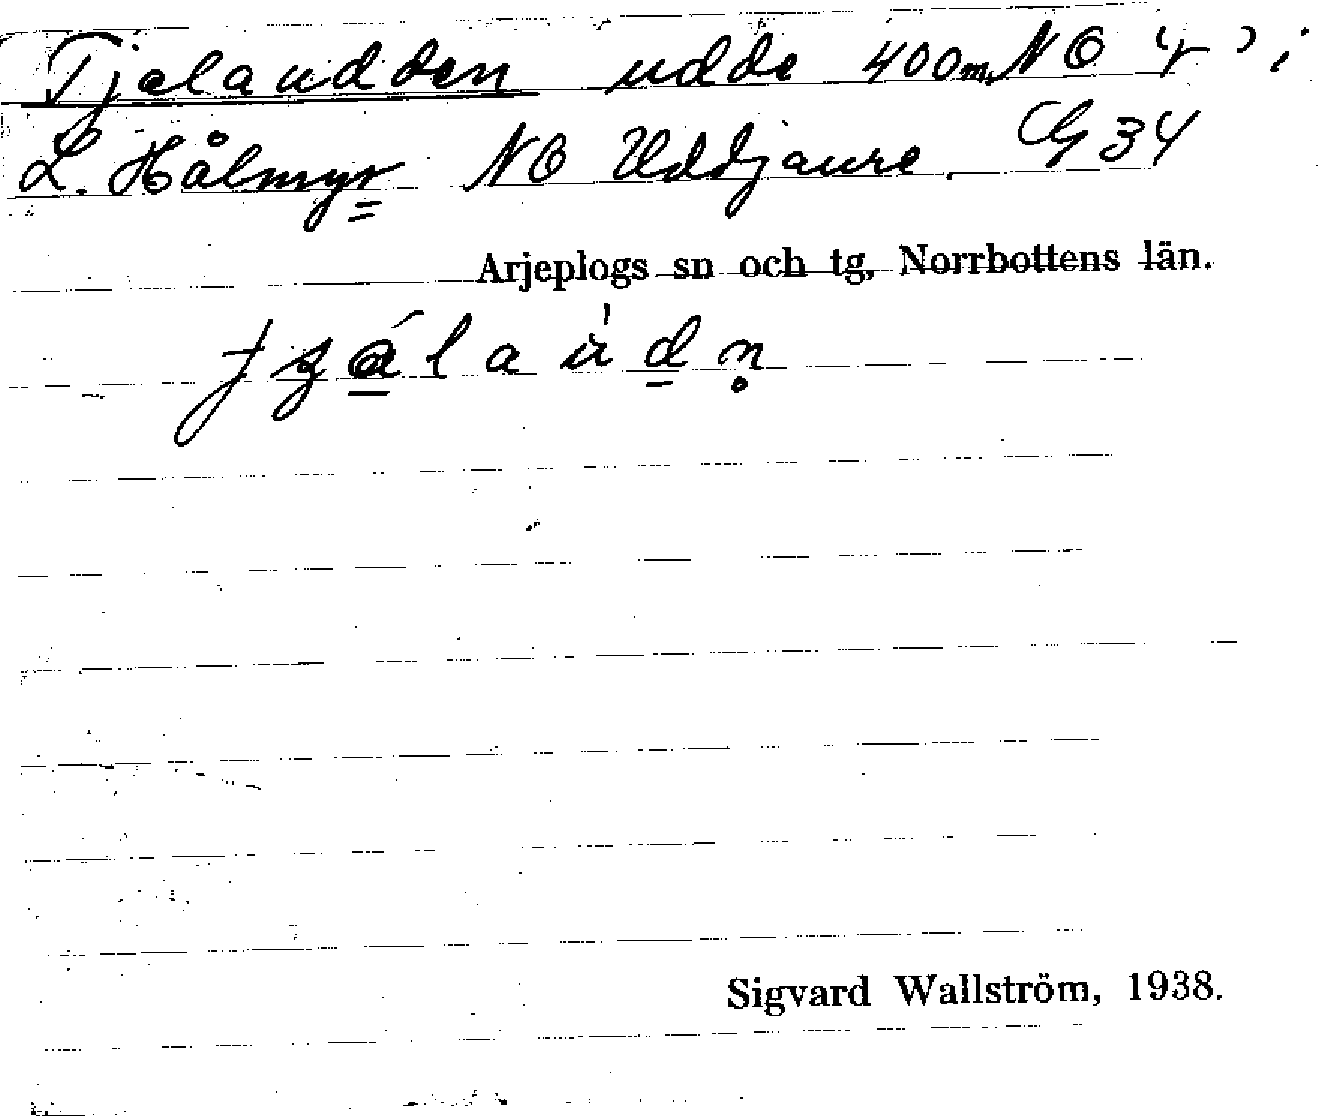 Tjalaudden udde 400m NO "r" i
L. Hålmyr NO Uddjaure. G34
Arjeplogs sn och tg, Norrbottens län.
Sigvard Wallström, 1938.